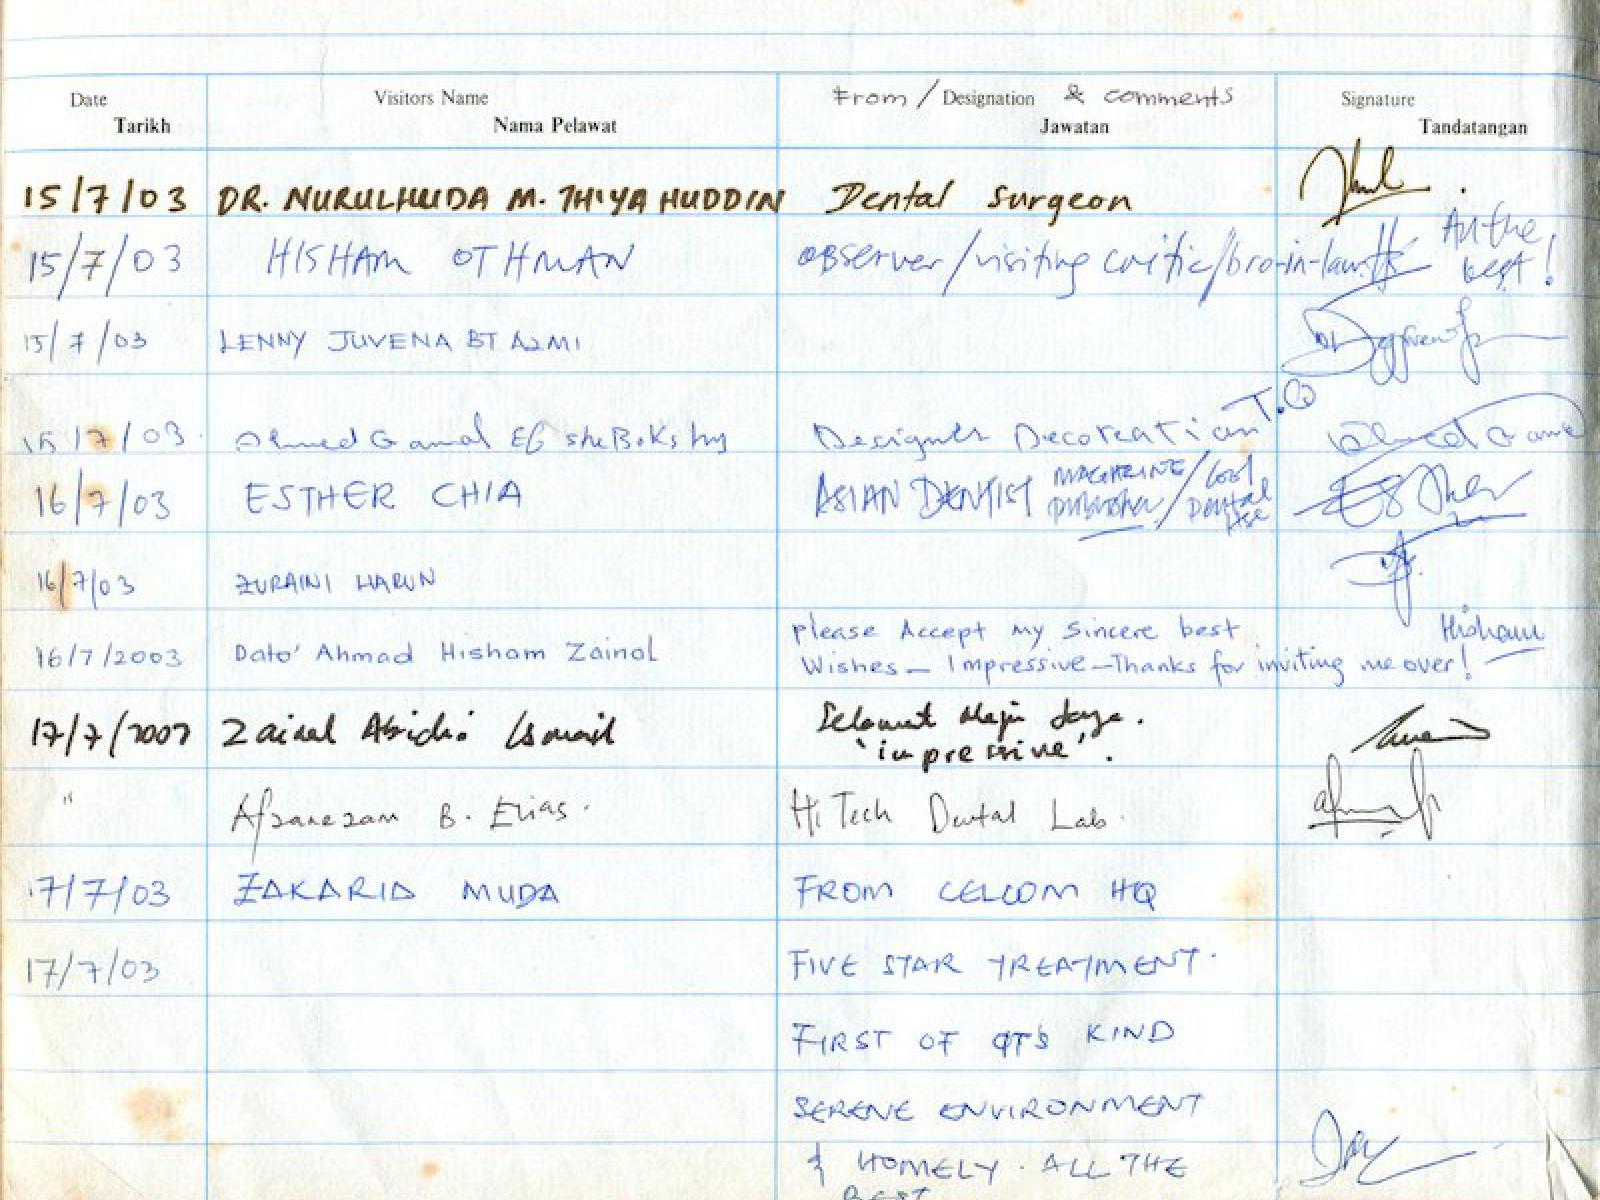 Date Visitors Name From / Designation & comments Signature
Tarikh Nama Pelawat Jawatan Tandatangan
15/7/03 DR. NURULHUDA M. THIYAHUDDIN Dental Surgeon
15/7/03 HISHAM OTHMAN observer/visiting critic/bro-in-law All the best!
15/7/03 LENNY JUVENA BT AZMI
15/7/03 Ahmed Gamal Designer Decoreation
16/7/03 ESTHER CHIA ASIAN DENTIST MAGAZINE PUBLISHER /
16/7/03 ZURAINI HARUN
16/7/2003 Dato' Ahmad Hisham Zainal please Accept my sincere best Hisham
Wishes - Impressive - Thanks for inviting me over!
17/7/2003 Zainal Abidin Ismail Selamat Maju Jaya.
'impressive'.
" Afzanezam B. Elias. Hi Tech Dental Lab.
17/7/03 ZAKARIA MUDA FROM CELCOM HQ
17/7/03 FIVE STAR TREATMENT.
FIRST OF ITS KIND
SERENE ENVIRONMENT
& HOMELY. ALL THE
BEST